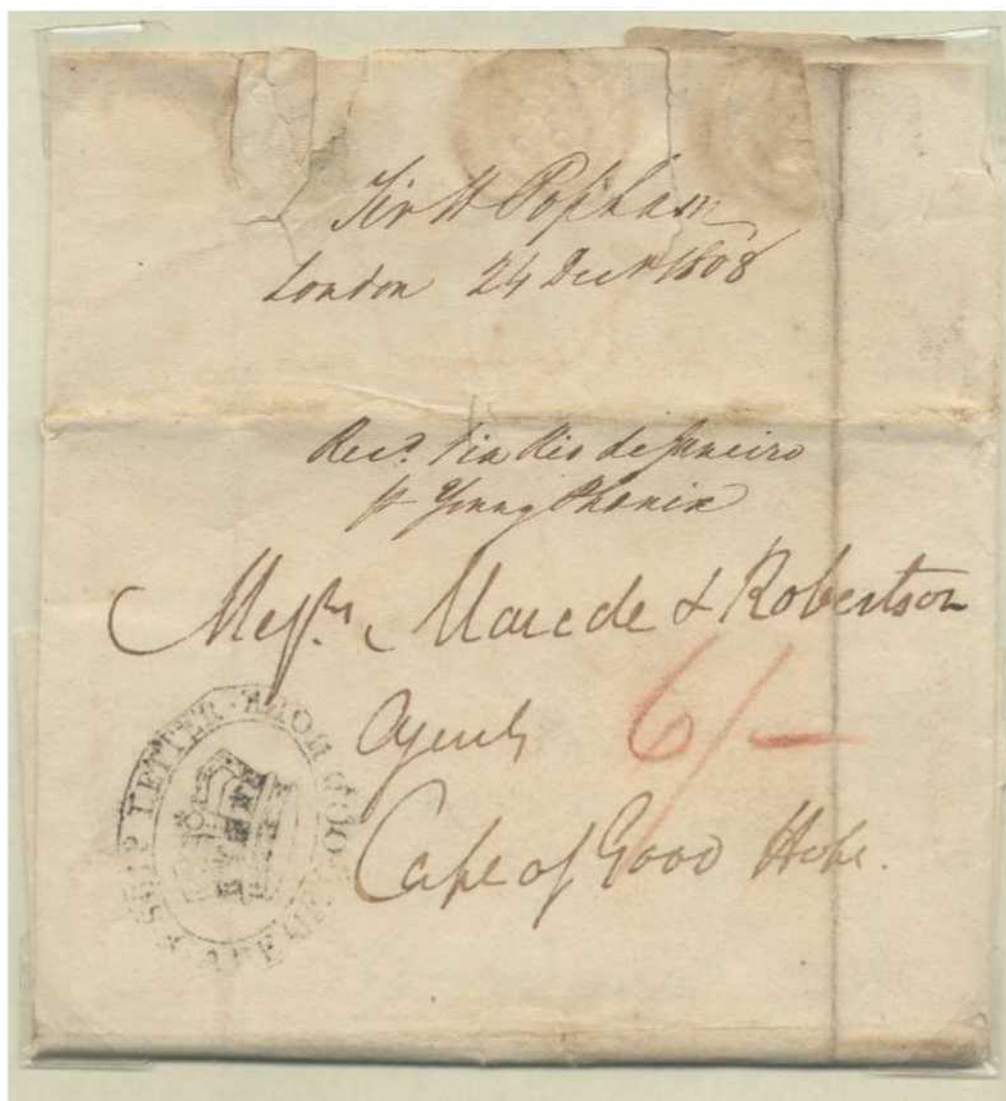 Sir H Popham
London 24 Decr 1808
Recd. Via Rio de Janeiro
pr Young Phenix
Messrs. Marede & Robertson
Agents 6/-
Cape of Good Hope.
SHIP LETTER · CAPE OF GOOD HOPE